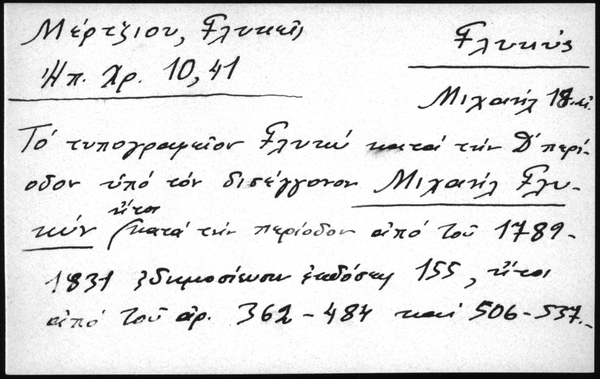 Μέρτζιου, Γλυκεῖς
Γλυκύς
Ἠπ. Χρ. 10, 41
Μιχαήλ 18 αἰ.
Τό τυπογραφεῖον Γλυκύ κατά τήν Δ' περί-
οδον ὑπό τόν δισέγγονον Μιχαήλ Γλυ-
κύν (ἤτοι κατά τήν περίοδον ἀπό τοῦ 1789-
1831 ἐδημοσίευσεν ἐκδόσεις 155, ἤτοι
ἀπό τοῦ ἀρ. 362-484 καί 506-537.-